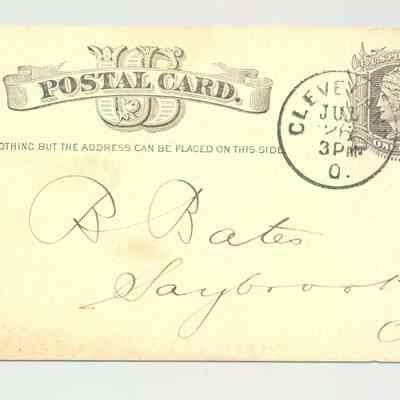 US
POSTAL CARD.
OTHING BUT THE ADDRESS CAN BE PLACED ON THIS SIDE
CLEVE
JUL
26
3PM
O.
B Bates
Saybrook
O